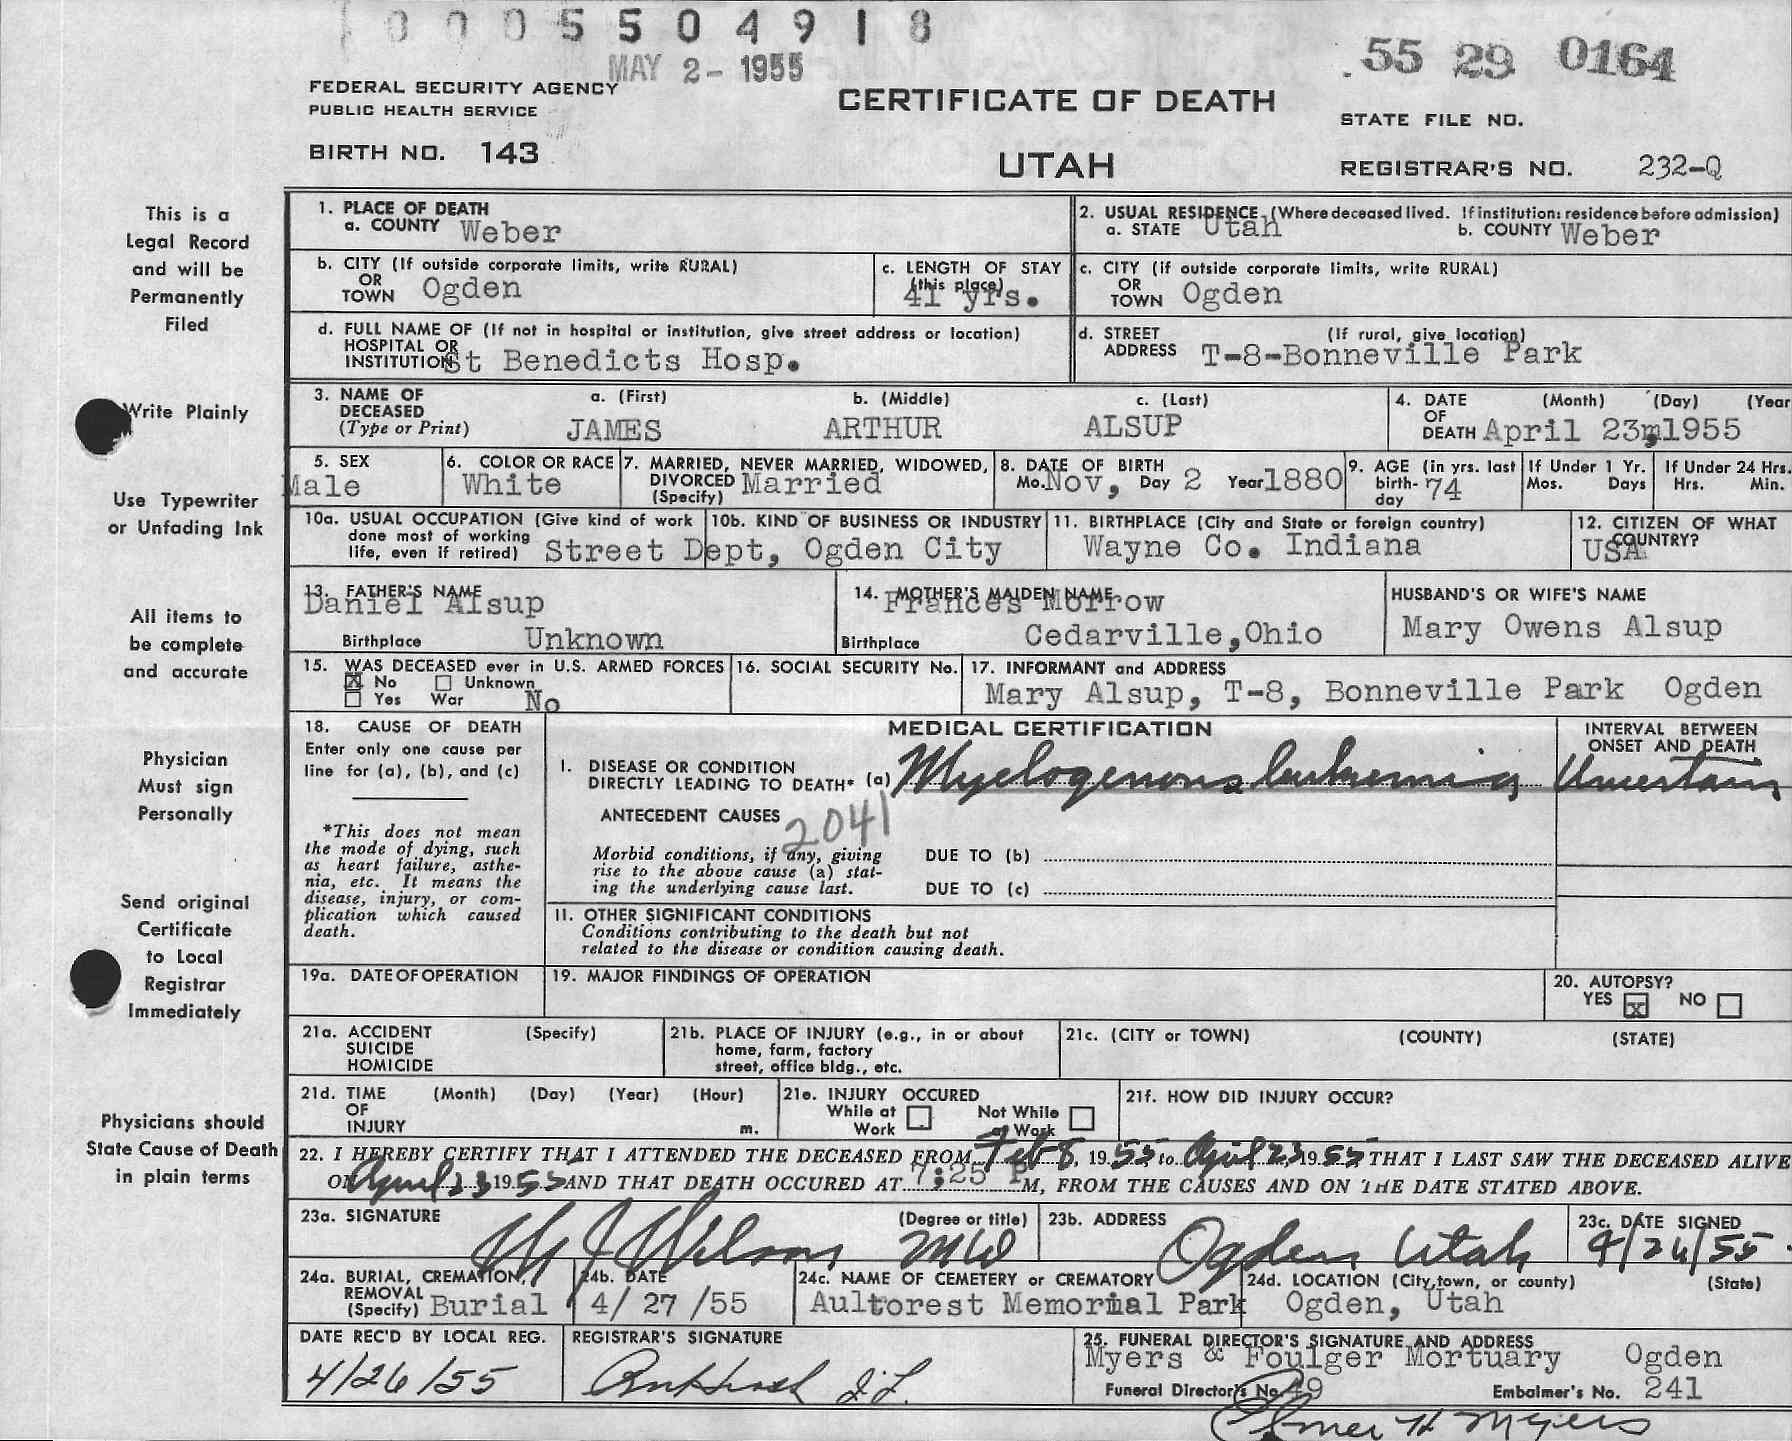 0005504918
MAY 2- 1955
55 29 0164
FEDERAL SECURITY AGENCY
PUBLIC HEALTH SERVICE
CERTIFICATE OF DEATH
STATE FILE NO.
BIRTH NO. 143
UTAH
REGISTRAR'S NO. 232-Q
This is a
Legal Record
and will be
Permanently
Filed
Write Plainly
Use Typewriter
or Unfading Ink
All items to
be complete
and accurate
Physician
Must sign
Personally
Send original
Certificate
to Local
Registrar
Immediately
Physicians should
State Cause of Death
in plain terms
1. PLACE OF DEATH
a. COUNTY Weber
2. USUAL RESIDENCE (Where deceased lived. If institution: residence before admission)
a. STATE Utah b. COUNTY Weber
b. CITY (If outside corporate limits, write RURAL)
OR
TOWN Ogden
c. LENGTH OF STAY
(this place)
41 yrs.
c. CITY (If outside corporate limits, write RURAL)
OR
TOWN Ogden
d. FULL NAME OF (If not in hospital or institution, give street address or location)
HOSPITAL OR
INSTITUTION St Benedicts Hosp.
d. STREET (If rural, give location)
ADDRESS T-8-Bonneville Park
3. NAME OF
DECEASED
(Type or Print)
a. (First) b. (Middle) c. (Last)
JAMES ARTHUR ALSUP
4. DATE (Month) (Day) (Year
OF
DEATH April 23, 1955
5. SEX
Male
6. COLOR OR RACE
White
7. MARRIED, NEVER MARRIED, WIDOWED,
DIVORCED Married
(Specify)
8. DATE OF BIRTH
Mo. Nov, Day 2 Year 1880
9. AGE (in yrs. last
birth-
day 74
If Under 1 Yr.
Mos. Days
If Under 24 Hrs.
Hrs. Min.
10a. USUAL OCCUPATION (Give kind of work
done most of working
life, even if retired) Street Dept,
10b. KIND OF BUSINESS OR INDUSTRY
Ogden City
11. BIRTHPLACE (City and State or foreign country)
Wayne Co. Indiana
12. CITIZEN OF WHAT
COUNTRY?
USA
13. FATHER'S NAME
Daniel Alsup
Birthplace Unknown
14. MOTHER'S MAIDEN NAME
Frances Morrow
Birthplace Cedarville,Ohio
HUSBAND'S OR WIFE'S NAME
Mary Owens Alsup
15. WAS DECEASED ever in U.S. ARMED FORCES
X No Unknown
Yes War No
16. SOCIAL SECURITY No.
17. INFORMANT and ADDRESS
Mary Alsup, T-8, Bonneville Park Ogden
18. CAUSE OF DEATH
Enter only one cause per
line for (a), (b), and (c)
*This does not mean
the mode of dying, such
as heart failure, asthe-
nia, etc. It means the
disease, injury, or com-
plication which caused
death.
MEDICAL CERTIFICATION
I. DISEASE OR CONDITION
DIRECTLY LEADING TO DEATH* (a) Myelogenous leukemia
INTERVAL BETWEEN
ONSET AND DEATH
Uncertain
ANTECEDENT CAUSES
2041
Morbid conditions, if any, giving
rise to the above cause (a) stat-
ing the underlying cause last.
DUE TO (b)
DUE TO (c)
II. OTHER SIGNIFICANT CONDITIONS
Conditions contributing to the death but not
related to the disease or condition causing death.
19a. DATE OF OPERATION
19. MAJOR FINDINGS OF OPERATION
20. AUTOPSY?
YES X NO
21a. ACCIDENT (Specify)
SUICIDE
HOMICIDE
21b. PLACE OF INJURY (e.g., in or about
home, farm, factory
street, office bldg., etc.
21c. (CITY or TOWN) (COUNTY) (STATE)
21d. TIME (Month) (Day) (Year) (Hour)
OF
INJURY m.
21e. INJURY OCCURED
While at Not While
Work at Work
21f. HOW DID INJURY OCCUR?
22. I HEREBY CERTIFY THAT I ATTENDED THE DECEASED FROM Feb 8, 1955 to April 23, 1955 THAT I LAST SAW THE DECEASED ALIVE
ON April 23 1955 AND THAT DEATH OCCURED AT 7:25 P M, FROM THE CAUSES AND ON THE DATE STATED ABOVE.
23a. SIGNATURE (Degree or title)
Wilson MD
23b. ADDRESS
Ogden Utah
23c. DATE SIGNED
4/26/55
24a. BURIAL, CREMATION,
REMOVAL
(Specify) Burial
24b. DATE
4/ 27 /55
24c. NAME OF CEMETERY or CREMATORY
Aultorest Memorial Park
24d. LOCATION (City, town, or county) (State)
Ogden, Utah
DATE REC'D BY LOCAL REG.
4/26/55
REGISTRAR'S SIGNATURE
25. FUNERAL DIRECTOR'S SIGNATURE AND ADDRESS
Myers & Foulger Mortuary Ogden
Funeral Director's No. 49 Embalmer's No. 241
Elmer H Myers